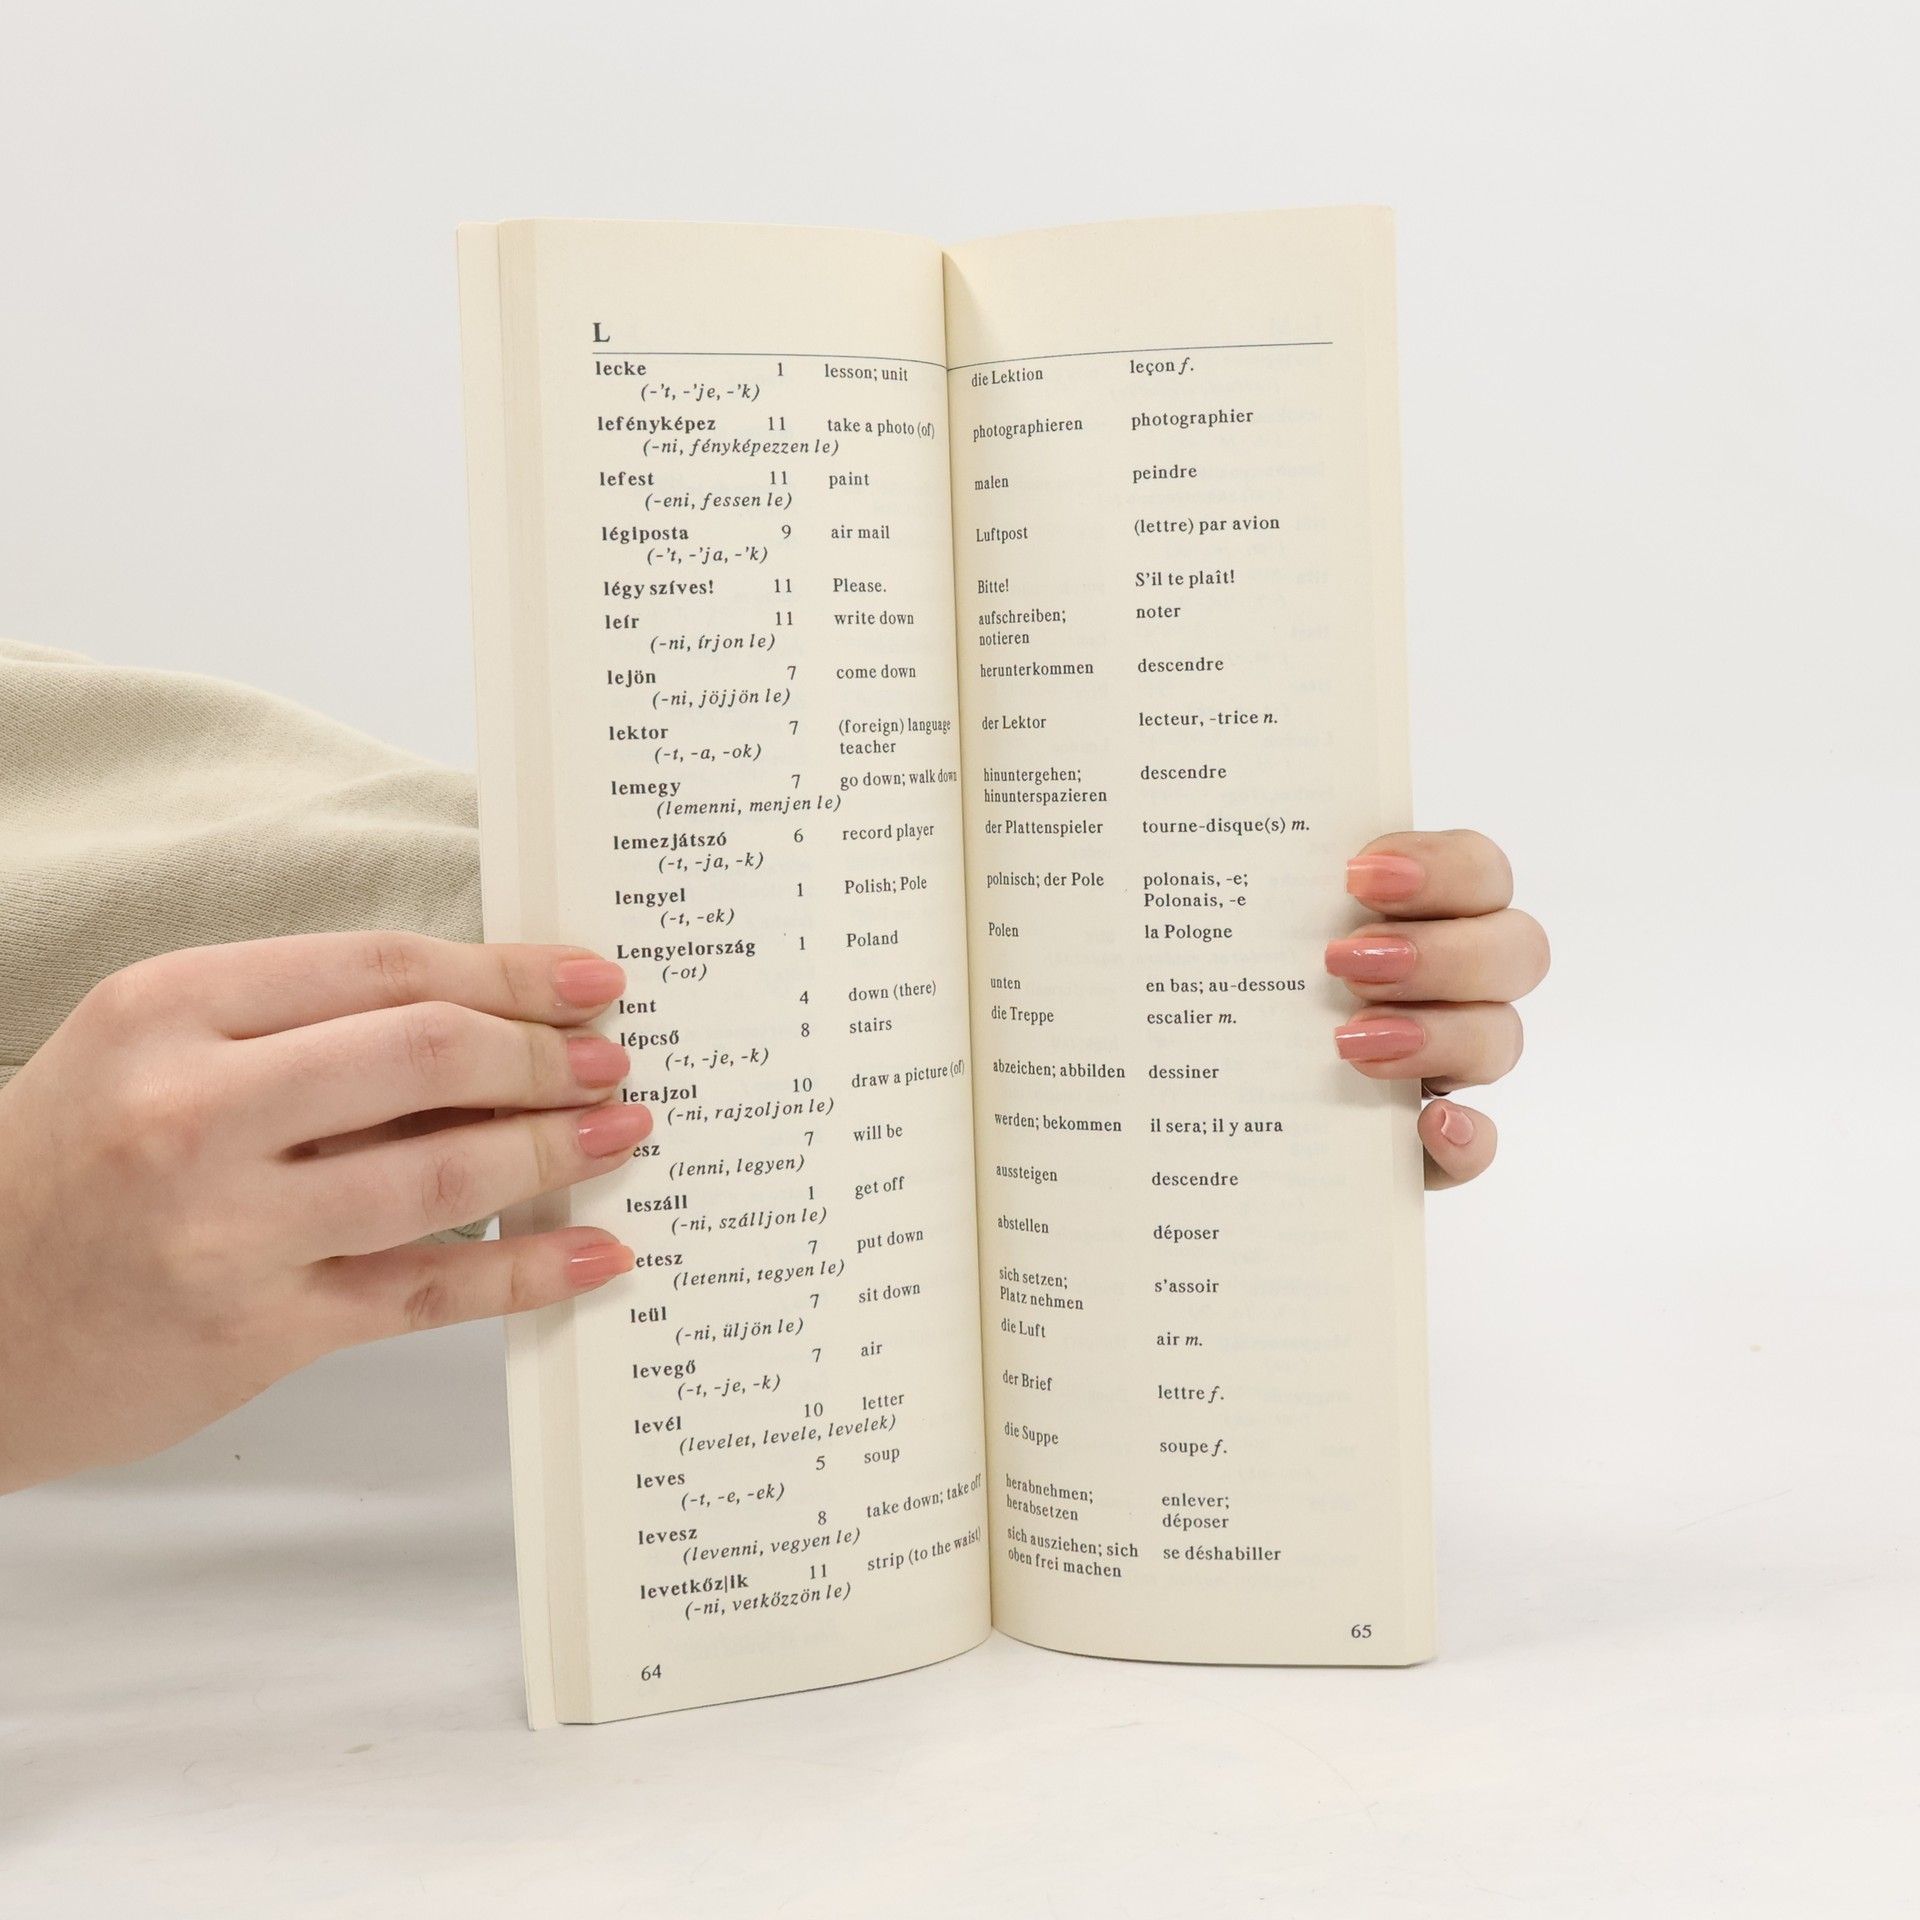 L
lecke 1 lesson; unit die Lektion leçon f.
(-’t, -’je, -’k)
lefényképez 11 take a photo (of) photographieren photographier
(-ni, fényképezzen le)
lefest 11 paint malen peindre
(-eni, fessen le)
légiposta 9 air mail Luftpost (lettre) par avion
(-’t, -’ja, -’k)
légy szíves! 11 Please. Bitte! S’il te plaît!
leír 11 write down aufschreiben; noter
(-ni, írjon le) notieren
lejön 7 come down herunterkommen descendre
(-ni, jöjjön le)
lektor 7 (foreign) language der Lektor lecteur, -trice n.
(-t, -a, -ok) teacher
lemegy 7 go down; walk down hinuntergehen; descendre
(lemenni, menjen le) hinunterspazieren
lemezjátszó 6 record player der Plattenspieler tourne-disque(s) m.
(-t, -ja, -k)
lengyel 1 Polish; Pole polnisch; der Pole polonais, -e;
(-t, -ek) Polonais, -e
Lengyelország 1 Poland Polen la Pologne
(-ot)
lent 4 down (there) unten en bas; au-dessous
lépcső 8 stairs die Treppe escalier m.
(-t, -je, -k)
lerajzol 10 draw a picture (of) abzeichen; abbilden dessiner
(-ni, rajzoljon le)
esz 7 will be werden; bekommen il sera; il y aura
(lenni, legyen)
leszáll 1 get off aussteigen descendre
(-ni, szálljon le)
etesz 7 put down abstellen déposer
(letenni, tegyen le)
leül 7 sit down sich setzen; s’assoir
(-ni, üljön le) Platz nehmen
levegő 7 air die Luft air m.
(-t, -je, -k)
levél 10 letter der Brief lettre f.
(levelet, levele, levelek)
leves 5 soup die Suppe soupe f.
(-t, -e, -ek)
levesz 8 take down; take off herabnehmen; enlever;
(levenni, vegyen le) herabsetzen déposer
levetkőz|ik 11 strip (to the waist) sich ausziehen; sich se déshabiller
(-ni, vetkőzzön le) oben frei machen
64 65